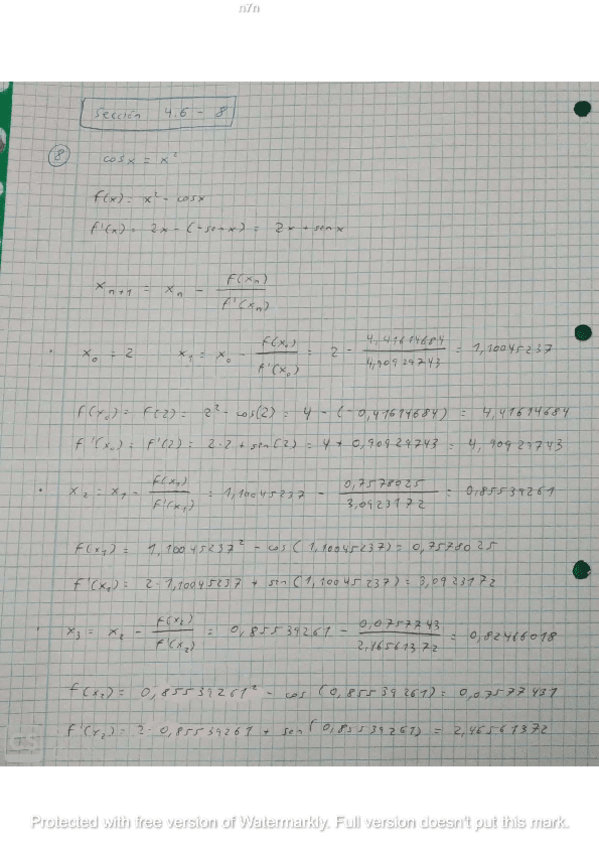 n7n
Sección 4.6 - 8
8 cosx = x²
f(x) = x² - cosx
f'(x) = 2x - (-senx) = 2x + senx
x_{n+1} = x_n - f(x_n) / f'(x_n)
· x₀ = 2 x₁ = x₀ - f(x₀) / f'(x₀) = 2 - 4,41614684 / 4,90929743 = 1,10045237
f(x₀) = f(2) = 2² - cos(2) = 4 - (-0,41614684) = 4,41614684
f'(x₀) = f'(2) = 2·2 + sen(2) = 4 + 0,90929743 = 4,90929743
· x₂ = x₁ - f(x₁) / f'(x₁) = 1,10045237 - 0,7578025 / 3,0923172 = 0,85539261
f(x₁) = 1,10045237² - cos(1,10045237) = 0,7578025
f'(x₁) = 2·1,10045237 + sin(1,10045237) = 3,0923172
· x₃ = x₂ - f(x₂) / f'(x₂) = 0,85539261 - 0,0757743 / 2,46561372 = 0,82466018
f(x₂) = 0,85539261² - cos(0,85539261) = 0,07577431
f'(x₂) = 2·0,85539261 + sen(0,85539261) = 2,46561372
CS
Protected with free version of Watermarkly. Full version doesn't put this mark.